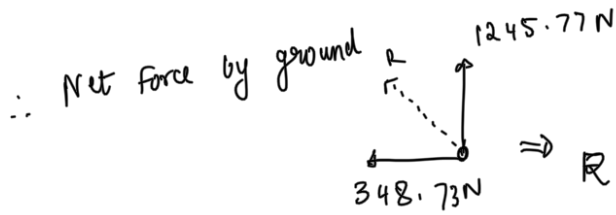 ∴ Net Force by ground
1245.77N
R
348.73N
⇒ R